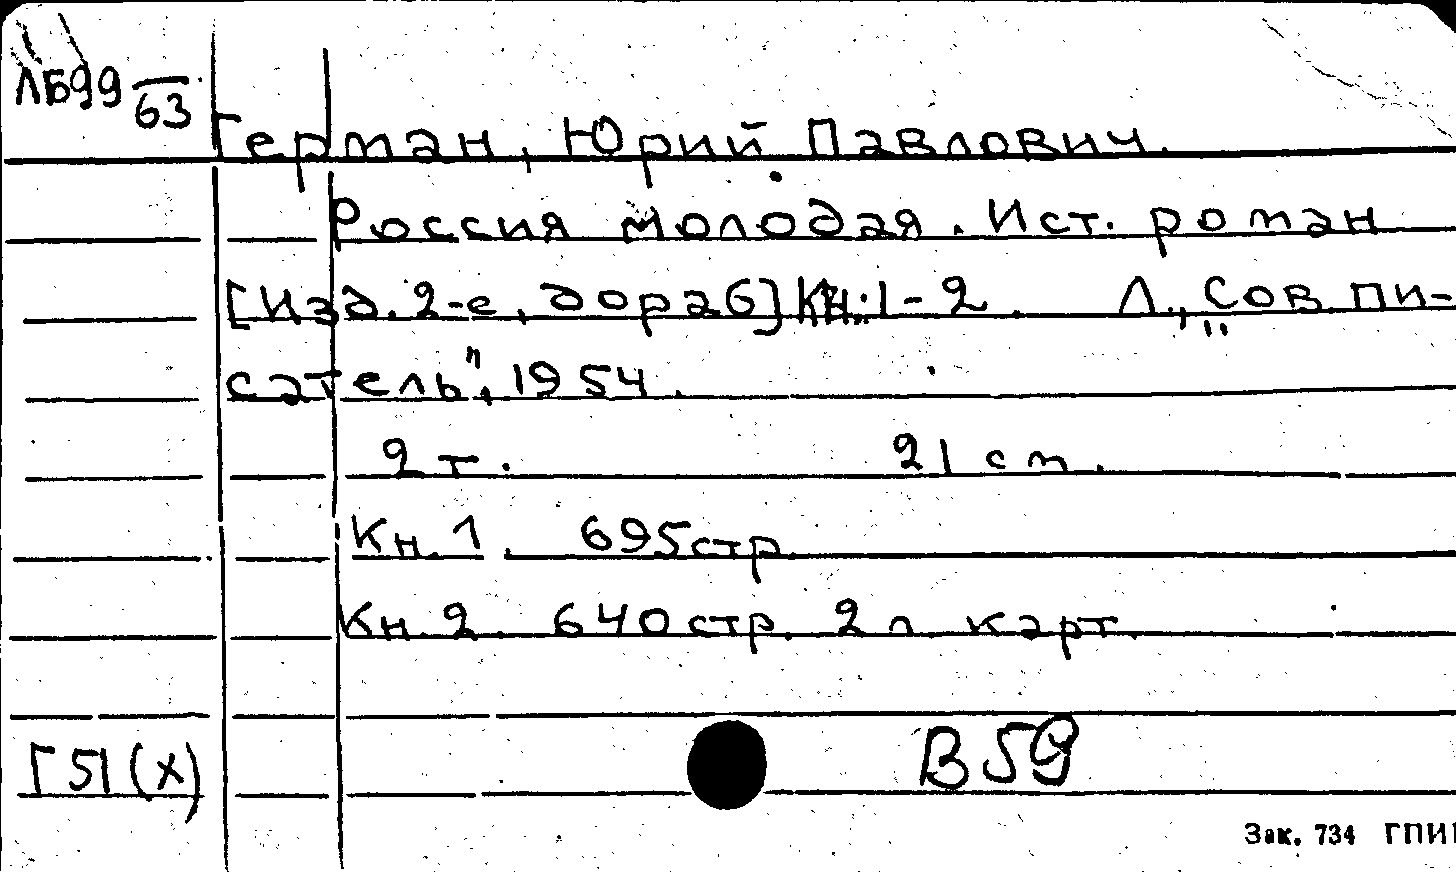 ЛБ99
63
Герман, Юрий Павлович.
Россия молодая. Ист. роман
[Изд. 2-е, дораб] Кн. 1-2. Л., „Сов. пи-
сатель", 1954.
2 т. 21 см.
Кн. 1. 695 стр.
Кн. 2. 640 стр. 2 л. карт.
Г51(х) В59
Зак. 734 ГПИ